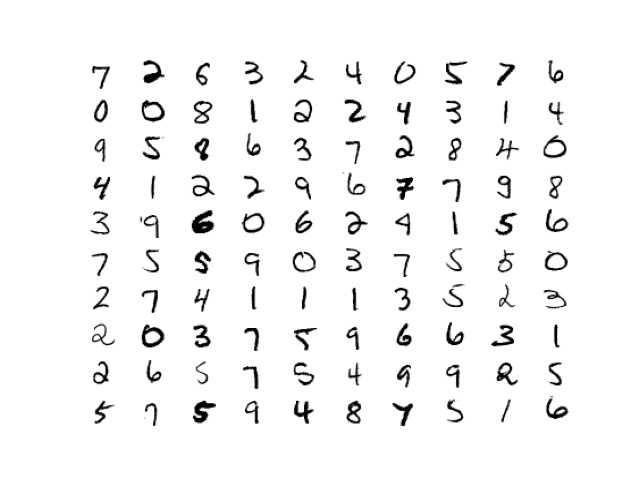 7 2 6 3 2 4 0 5 7 6
0 0 8 1 2 2 4 3 1 4
9 5 8 6 3 7 2 8 4 0
4 1 2 2 9 6 7 7 9 8
3 9 6 0 6 2 9 1 5 6
7 5 5 9 0 3 7 5 5 0
2 7 4 1 1 1 3 5 2 3
2 0 3 7 5 9 6 6 3 1
2 6 5 7 5 4 9 9 2 5
5 7 5 9 4 8 7 5 1 6